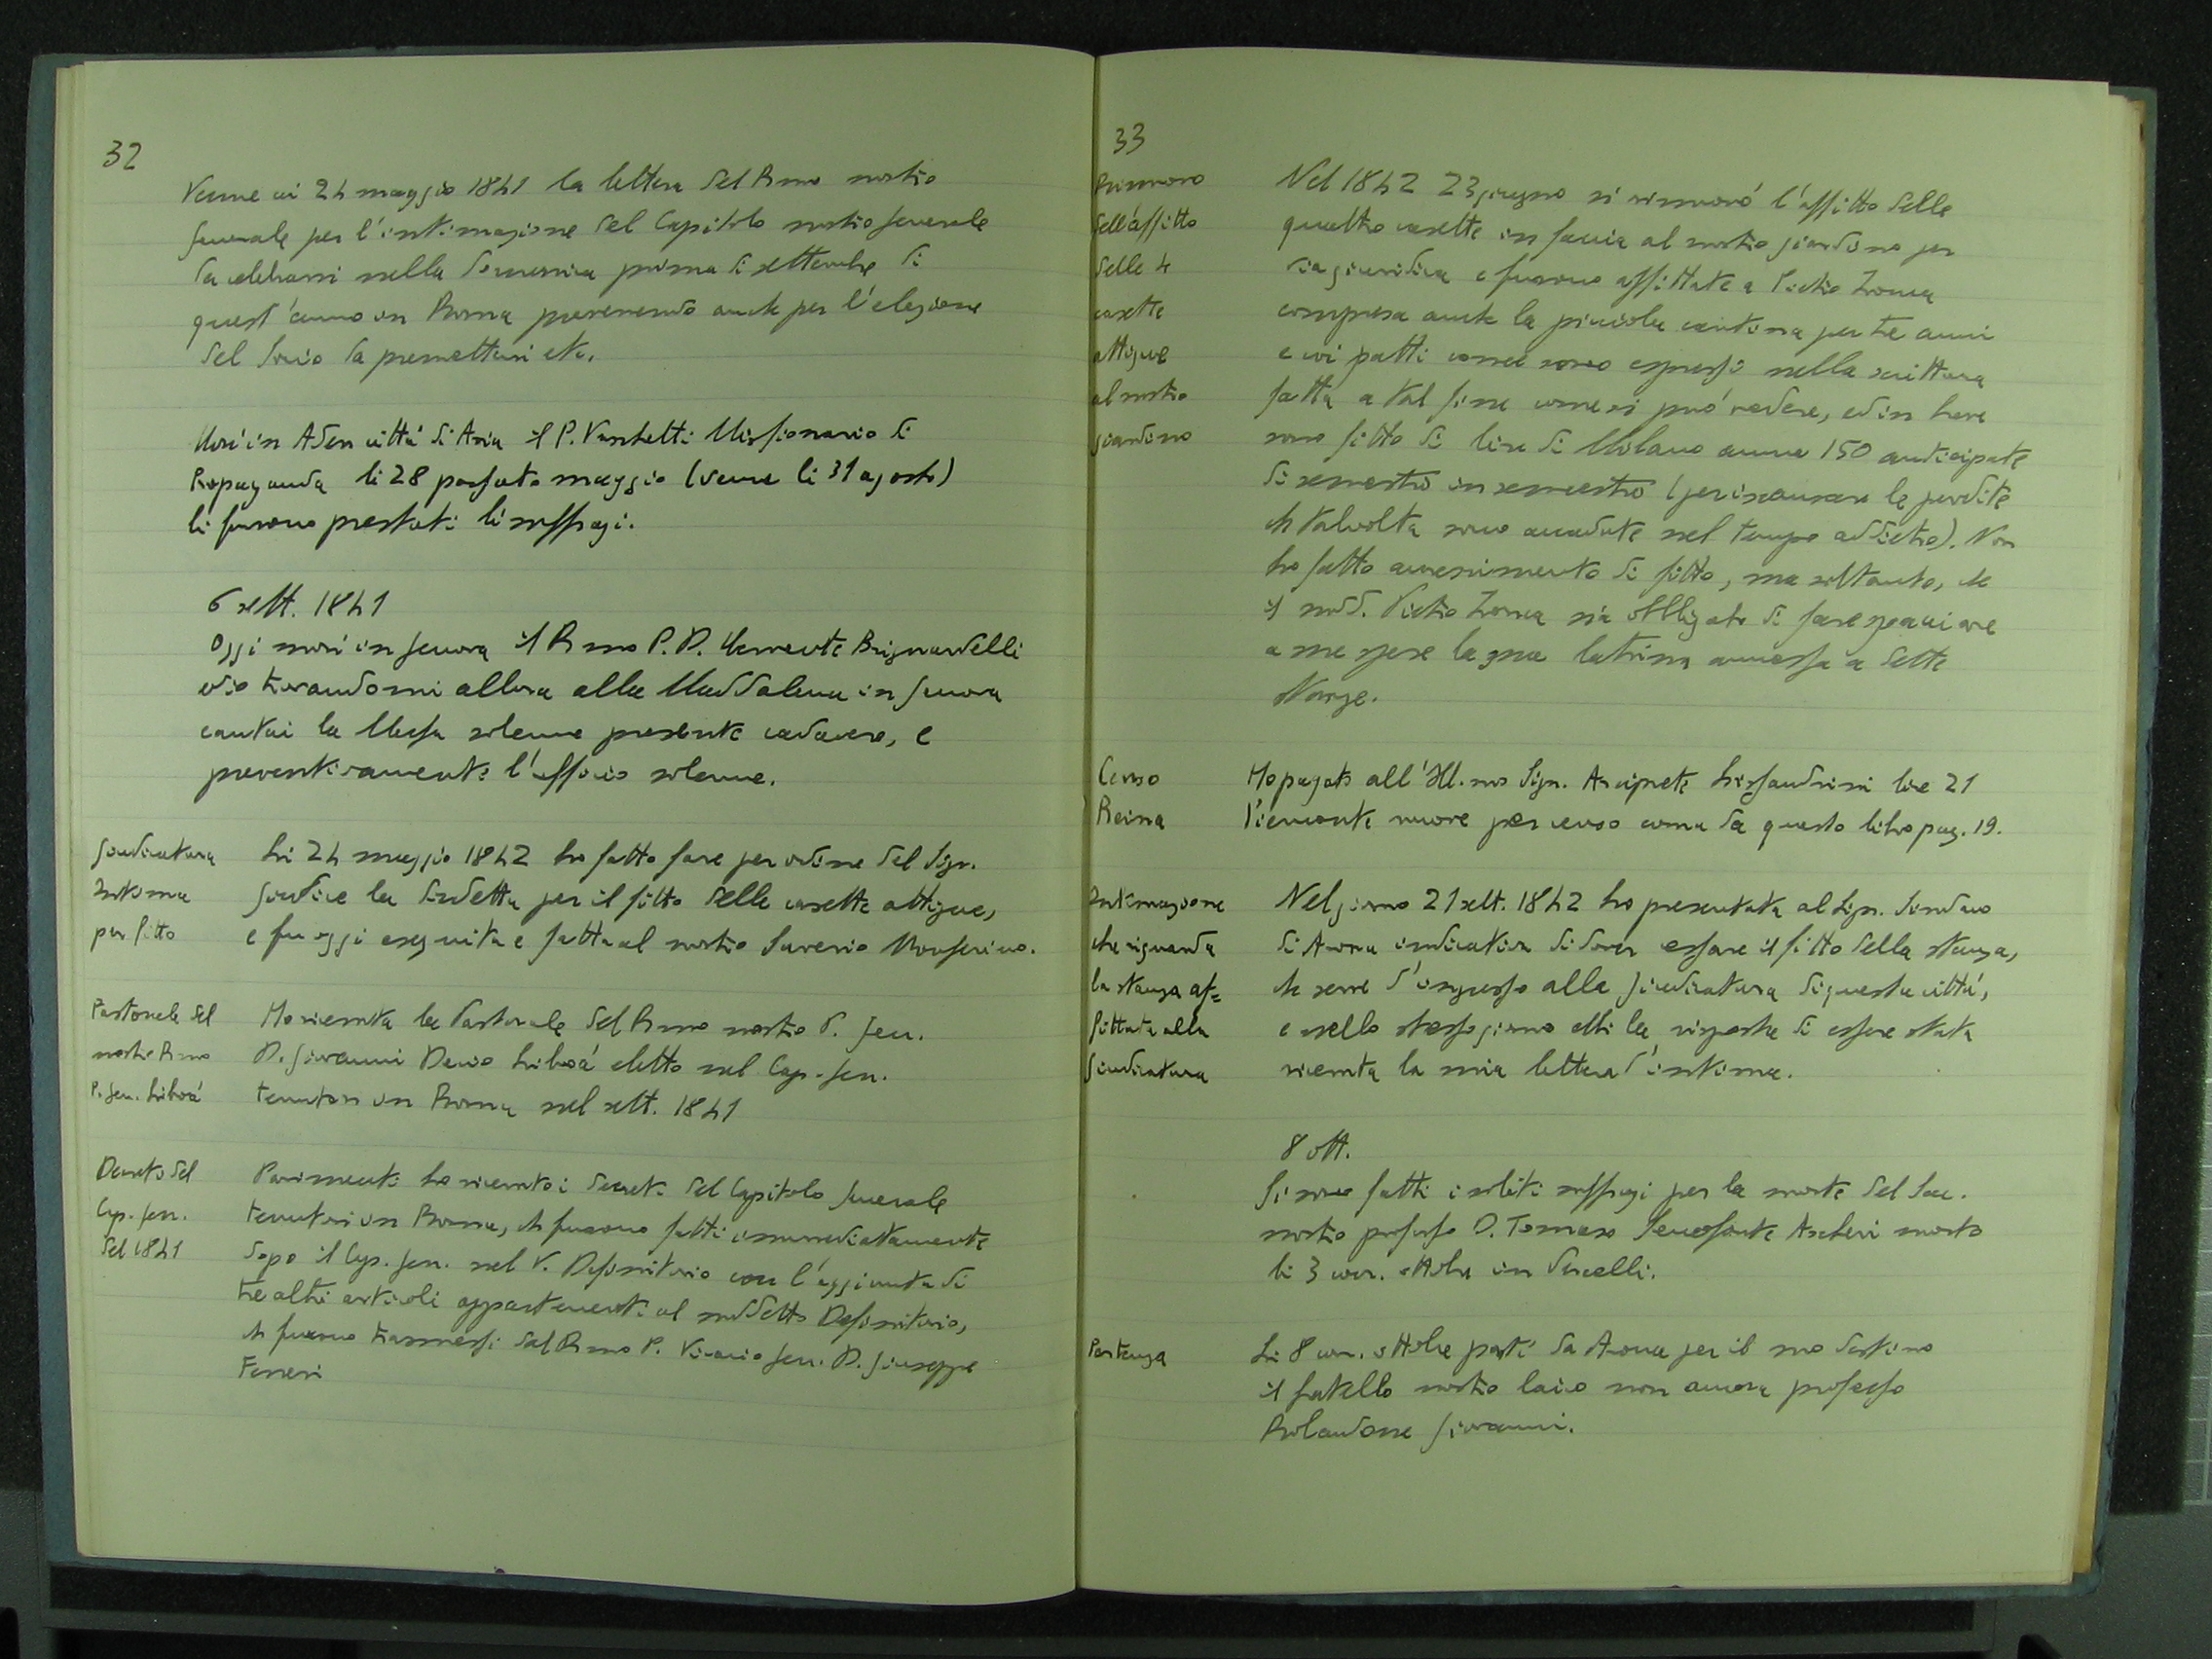 32
Venne ai 24 maggio 1841 la lettera del R.mo nostro
generale per l'intimazione del Capitolo nostro generale
da celebrarsi nella domenica prima di settembre di
quest'anno in Roma prevenendo anche per l'elezione
del Socio da premettersi etc.
Morì in Aden città di Asia il P. Vanchetti Missionario di
Propaganda li 28 passato maggio (venne li 31 agosto)
li furono prestati li suffragi.
6 sett. 1841
Oggi morì in Genova il R.mo P. D. Clemente Brignardelli
ed io trovandomi allora alla Maddalena in Genova
cantai la Messa solenne presente cadavere, e
preventivamente l'ufficio solenne.
Giudicatura
Intima
per fitto
Li 24 maggio 1842 ho fatto fare per ordine del Sign.
Giudice la disdetta per il fitto delle casette attigue,
e fu oggi eseguita e fatta al nostro Saverio Monferino.
Pastorale del
nostro R.mo
P. Gen. Libroà
Ho ricevuta la Pastorale del R.mo nostro P. Gen.
D. Giovanni Decio Libroà eletto nel Cap. Gen.
tenutosi in Roma nel sett. 1841
Decreto del
Cap. Gen.
del 1841
Parimenti ho ricevuto i decreti del Capitolo generale
tenutosi in Roma, che furono fatti immediatamente
dopo il Cap. Gen. nel V. Definitorio con l'aggiunta di
tre altri articoli appartenenti al suddetto Definitorio,
ch furono trasmessi dal R.mo P. Vicario Gen. D. Giuseppe
Ferreri
33
Rinnovo
dell'affitto
delle 4
casette
attigue
al nostro
giardino
Nel 1842 23 giugno si rinnovò l'affitto delle
quattro casette in faccia al nostro giardino per
via giuridica e furono affittate a Pietro Zonca
compresa anche la piccola cantina per tre anni
e coi patti come sono espressi nella scrittura
fatta a tal fine come si può vedere, ed in breve
sono fitto di lire di Milano annue 150 anticipate
di semestre in semestre (per iscansare le perdite
ch talvolta sono accadute nel tempo addietro). Non
ho fatto accrescimento di fitto, ma soltanto, che
il sudd. Pietro Zonca sia obbligato di fare spacciare
a sue spese la sua latrina annessa a dette
stanze.
Censo
Reina
Ho pagato all'Ill.mo Sign. Arciprete Lissandrini lire 21
Piemonte nuove per censo come da questo libro pag. 19.
Intimazione
che riguarda
la stanza af=
fittata alla
Giudicatura
Nel giorno 21 sett. 1842 ho presentata al Sign. Sindaco
di Arona indicativa di dover cessare il fitto della stanza,
ch serve d'ingresso alla giudicatura di questa città,
e nello stesso giorno ebbi la risposta di essere stata
ricevuta la mia lettera d'intima.
8 ott.
Si sono fatti i soliti suffragi per la morte del Sac.
nostro professo D. Tomaso Senofonte Ascheri morto
li 3 corr. ottobre in Vercelli.
Partenza
Li 8 corr. ottobre partì da Arona per il suo destino
il fratello nostro laico non ancora professo
Rolandone Giovanni.